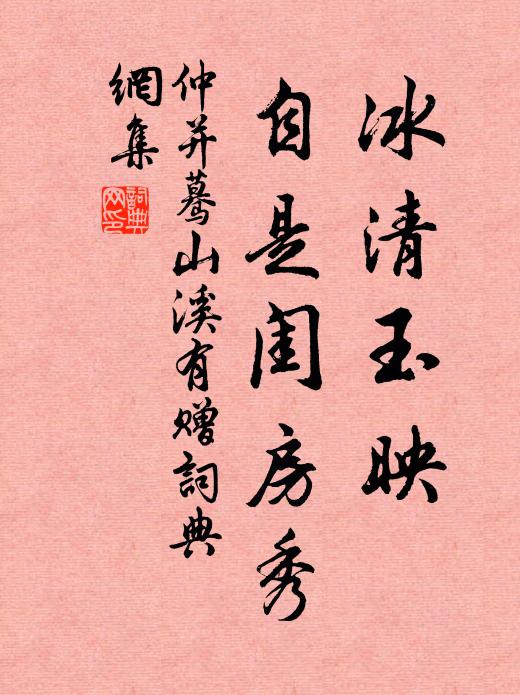 冰清玉映
自是闺房秀
仲并蓦山溪有赠詞典
網集
詞典
网印